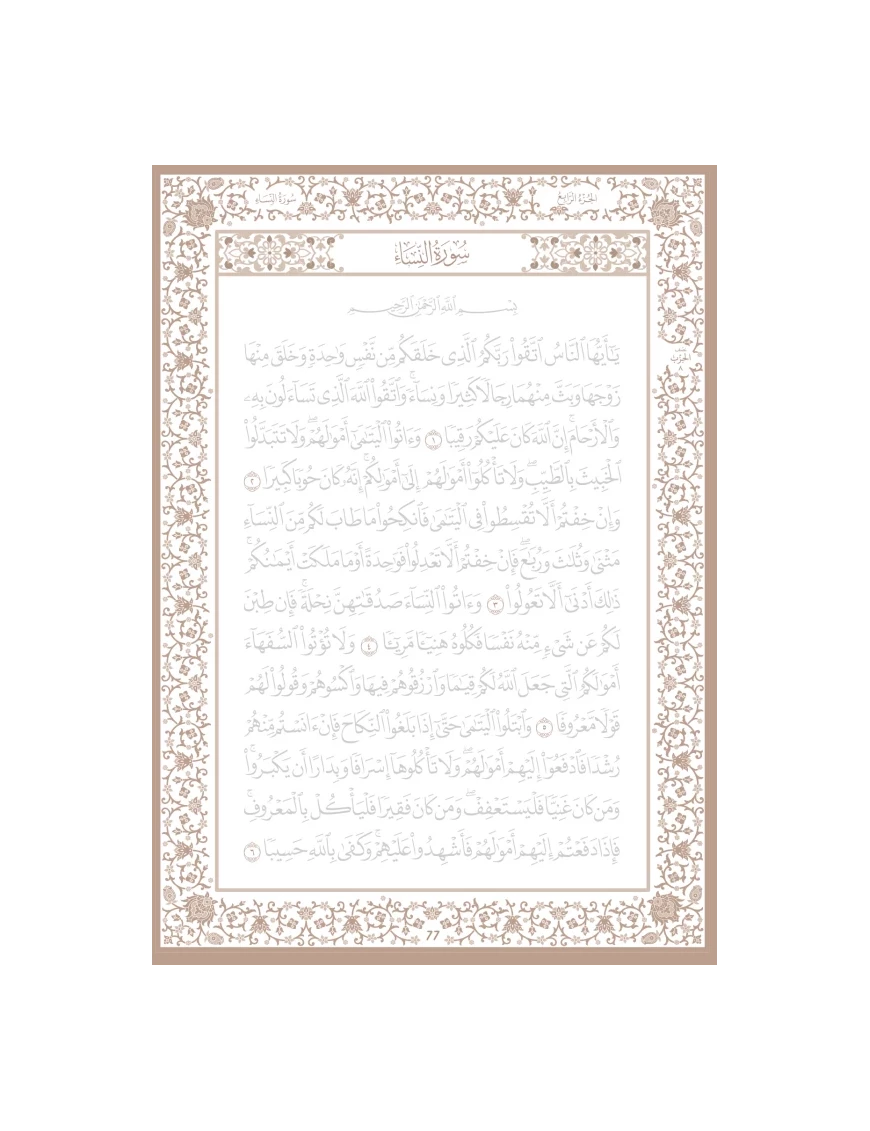 سُورَةُ النِّسَاءِ
الجُزْءُ الرَّابِعُ
سُورَةُ النِّسَاءِ
بِسْمِ ٱللَّهِ ٱلرَّحْمَٰنِ ٱلرَّحِيمِ
يَٰٓأَيُّهَا ٱلنَّاسُ ٱتَّقُوا۟ رَبَّكُمُ ٱلَّذِى خَلَقَكُم مِّن نَّفْسٍ وَٰحِدَةٍ وَخَلَقَ مِنْهَا
زَوْجَهَا وَبَثَّ مِنْهُمَا رِجَالًا كَثِيرًا وَنِسَآءً ۚ وَٱتَّقُوا۟ ٱللَّهَ ٱلَّذِى تَسَآءَلُونَ بِهِۦ
وَٱلْأَرْحَامَ ۚ إِنَّ ٱللَّهَ كَانَ عَلَيْكُمْ رَقِيبًا ١ وَءَاتُوا۟ ٱلْيَتَٰمَىٰٓ أَمْوَٰلَهُمْ ۖ وَلَا تَتَبَدَّلُوا۟
ٱلْخَبِيثَ بِٱلطَّيِّبِ ۖ وَلَا تَأْكُلُوٓا۟ أَمْوَٰلَهُمْ إِلَىٰٓ أَمْوَٰلِكُمْ ۚ إِنَّهُۥ كَانَ حُوبًا كَبِيرًا ٢
وَإِنْ خِفْتُمْ أَلَّا تُقْسِطُوا۟ فِى ٱلْيَتَٰمَىٰ فَٱنكِحُوا۟ مَا طَابَ لَكُم مِّنَ ٱلنِّسَآءِ
مَثْنَىٰ وَثُلَٰثَ وَرُبَٰعَ ۖ فَإِنْ خِفْتُمْ أَلَّا تَعْدِلُوا۟ فَوَٰحِدَةً أَوْ مَا مَلَكَتْ أَيْمَٰنُكُمْ ۚ
ذَٰلِكَ أَدْنَىٰٓ أَلَّا تَعُولُوا۟ ٣ وَءَاتُوا۟ ٱلنِّسَآءَ صَدُقَٰتِهِنَّ نِحْلَةً ۚ فَإِن طِبْنَ
لَكُمْ عَن شَىْءٍ مِّنْهُ نَفْسًا فَكُلُوهُ هَنِيٓـًٔا مَّرِيٓـًٔا ٤ وَلَا تُؤْتُوا۟ ٱلسُّفَهَآءَ
أَمْوَٰلَكُمُ ٱلَّتِى جَعَلَ ٱللَّهُ لَكُمْ قِيَٰمًا وَٱرْزُقُوهُمْ فِيهَا وَٱكْسُوهُمْ وَقُولُوا۟ لَهُمْ
قَوْلًا مَّعْرُوفًا ٥ وَٱبْتَلُوا۟ ٱلْيَتَٰمَىٰ حَتَّىٰٓ إِذَا بَلَغُوا۟ ٱلنِّكَاحَ فَإِنْ ءَانَسْتُم مِّنْهُمْ
رُشْدًا فَٱدْفَعُوٓا۟ إِلَيْهِمْ أَمْوَٰلَهُمْ ۖ وَلَا تَأْكُلُوهَآ إِسْرَافًا وَبِدَارًا أَن يَكْبَرُوا۟ ۚ
وَمَن كَانَ غَنِيًّا فَلْيَسْتَعْفِفْ ۖ وَمَن كَانَ فَقِيرًا فَلْيَأْكُلْ بِٱلْمَعْرُوفِ ۚ
فَإِذَا دَفَعْتُمْ إِلَيْهِمْ أَمْوَٰلَهُمْ فَأَشْهِدُوا۟ عَلَيْهِمْ ۚ وَكَفَىٰ بِٱللَّهِ حَسِيبًا ٦
الحِزْبُ
٨
77